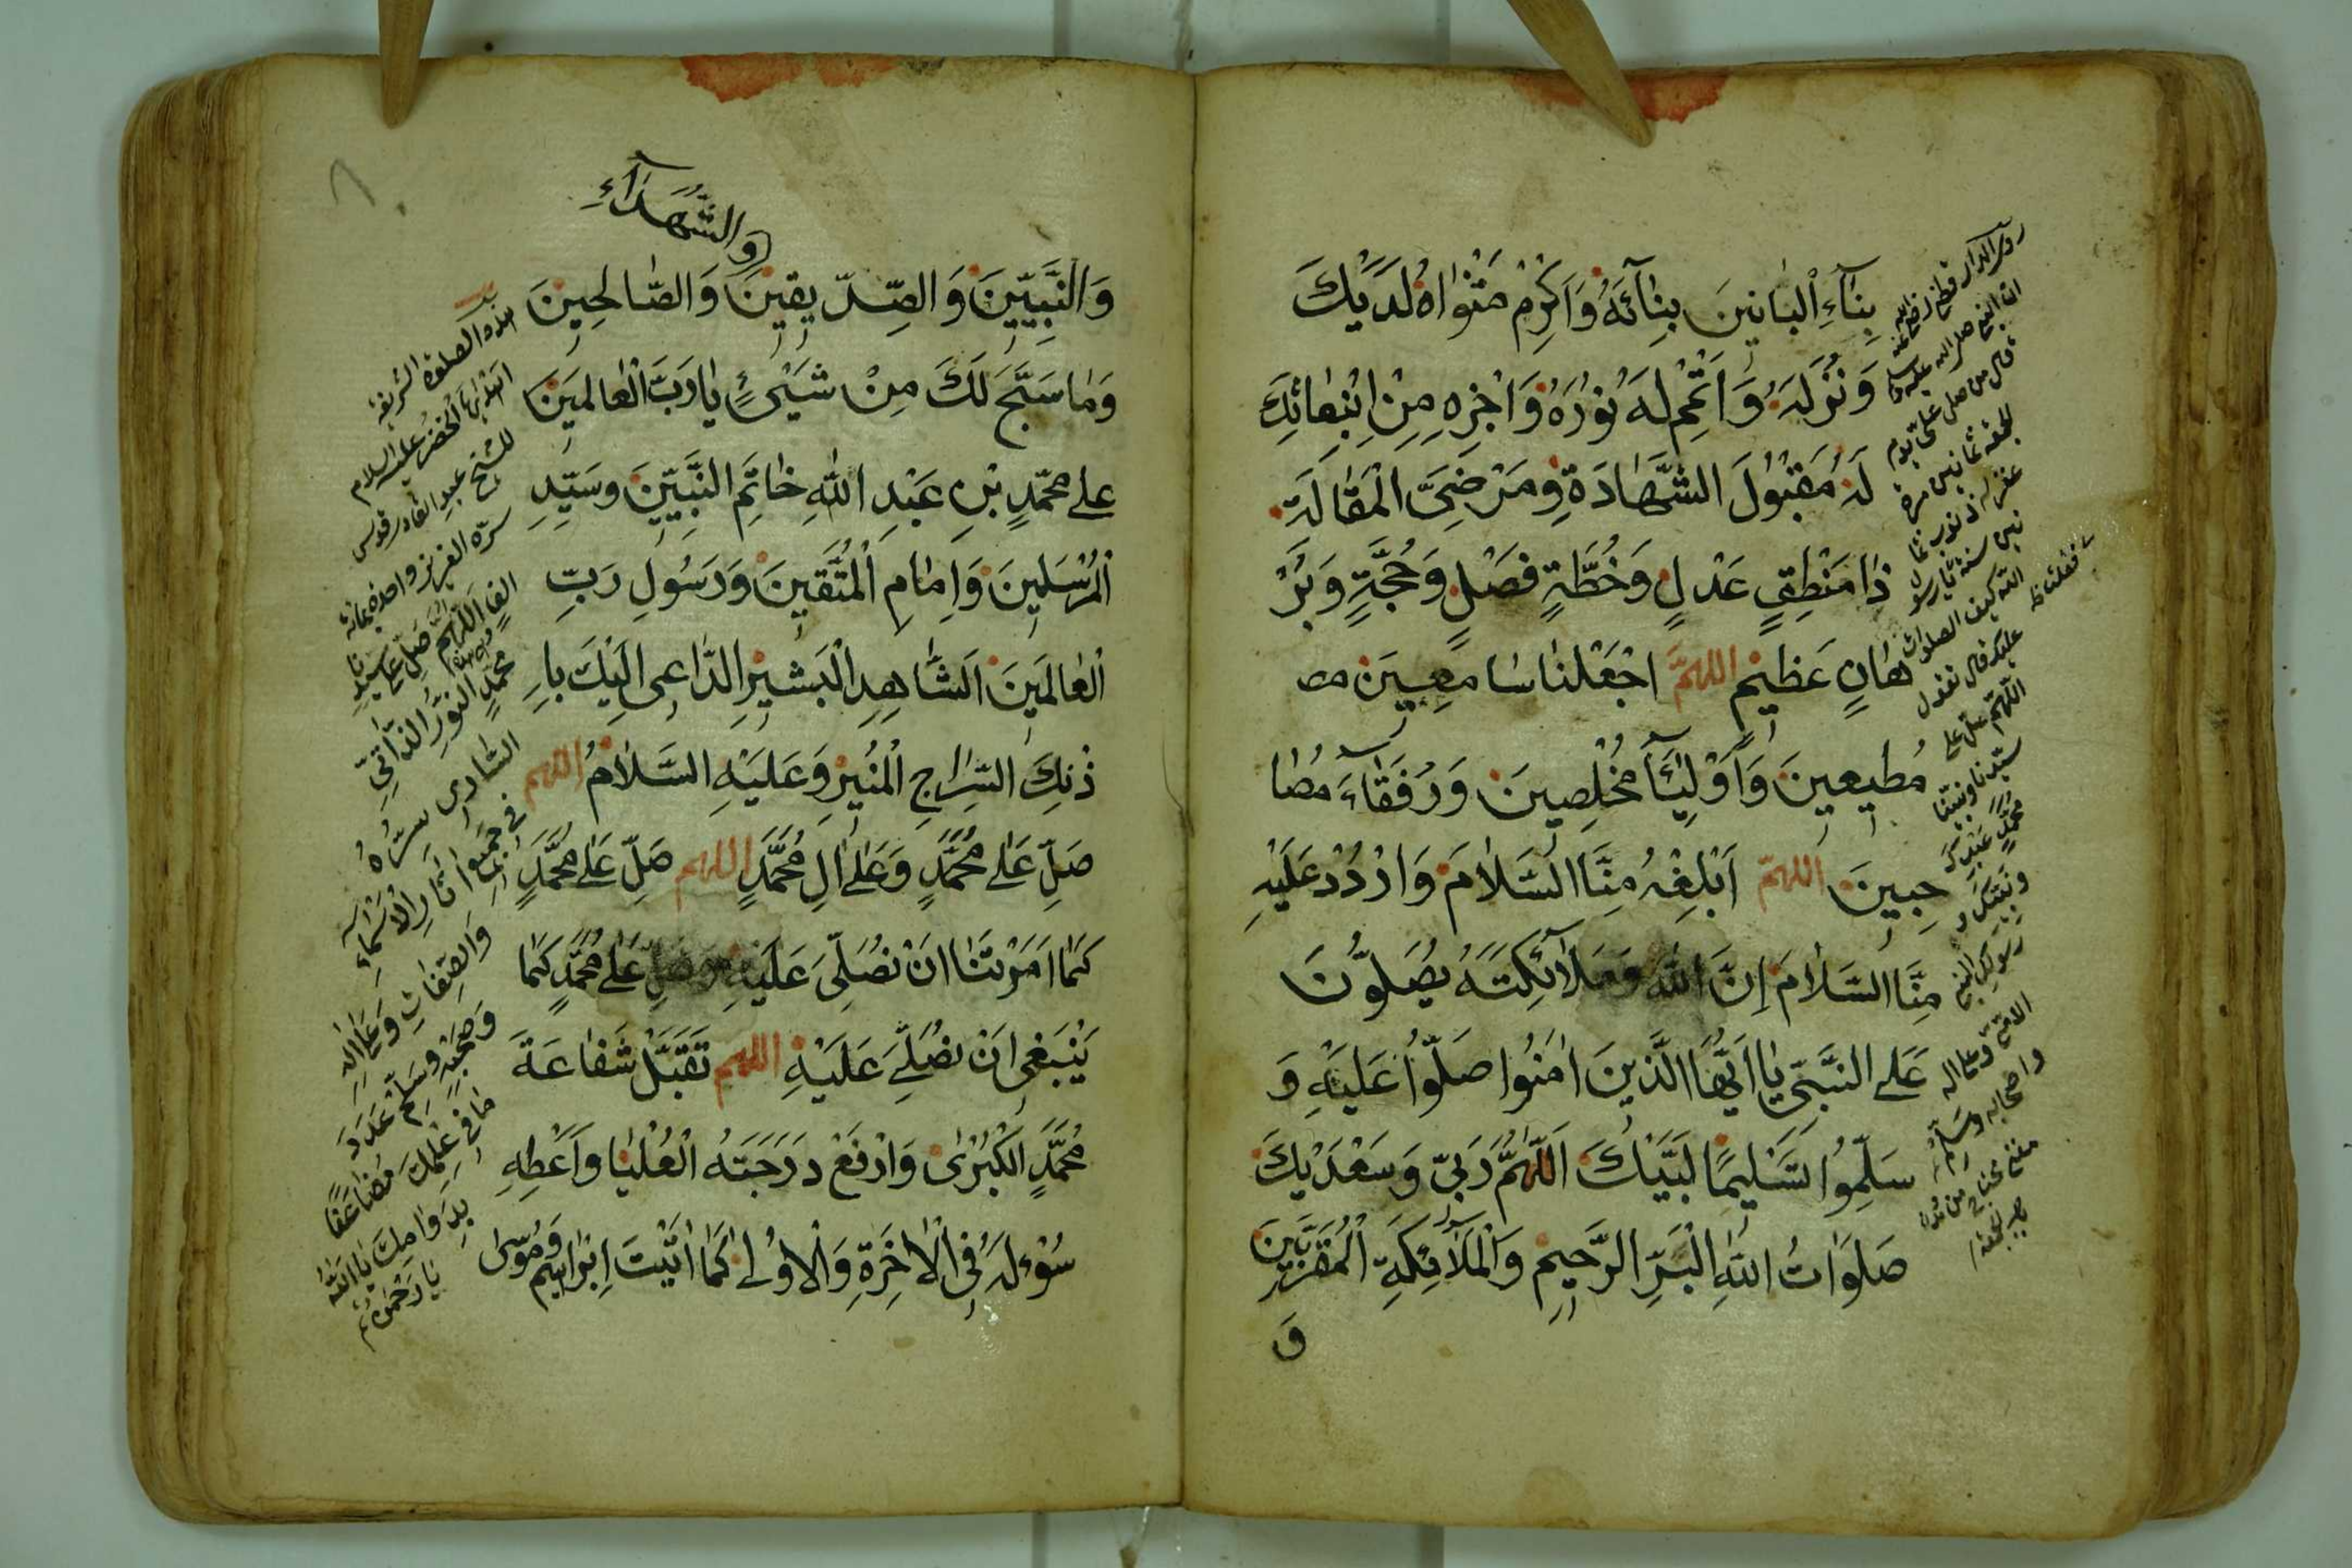 بِنَاءِ الْبَانِينَ بِنَائَهُ وَاَكْرِمْ مَثْوَاهُ لَدَيْكَ
وَنُزُلَهُ وَاَتْمِمْ لَهُ نُورَهُ وَاَجْزِهِ مِنْ اِبْتِعَائِكَ
لَهُ مَقْبُولَ الشَّهَادَةِ وَمَرْضِيَّ الْمَقَالَةِ
ذَا مَنْطِقٍ عَدْلٍ وَخُطَّةٍ فَصْلٍ وَحُجَّةٍ وَبُرْ
هَانٍ عَظِيمٍ اللهُمَّ اجْعَلْنَا سَامِعِينَ مط
مُطِيعِينَ وَاَوْلِيَآءَ مُخْلِصِينَ وَرُفَقَاءَ مُصَا
حِبِينَ اللهُمَّ اَبْلِغْهُ مِنَّا السَّلَامَ وَارْدُدْ عَلَيْهِ
مِنَّا السَّلَامَ اِنَّ اللهَ وَمَلَآئِكَتَهُ يُصَلُّونَ
عَلَى النَّبِيِّ يَا اَيُّهَا الَّذِينَ اٰمَنُوا صَلُّوا عَلَيْهِ وَ
سَلِّمُوا تَسْلِيمًا لَبَّيْكَ اَللّٰهُمَّ رَبِّي وَسَعْدَيْكَ
صَلَوَاتُ اللهِ الْبَرِّ الرَّحِيمِ وَالْمَلَآئِكَةِ الْمُقَرَّبِينَ
وَ
ان النبي صلى الله عليه وسلم
قال من صلى علي يوم
الجمعة ثمانين مرة
غفر له ذنوب ثما
نين سنة قيل يا رسول
الله كيف الصلوة
عليك قال تقول
اللهم صل على
سيدنا ونبينا
محمد عبدك
ونبيك و
رسولك النبي
الامي وعلى اله
واصحابه وسلم
وَالشُّهَدَآءِ
وَالنَّبِيِّينَ وَالصِّدِّيقِينَ وَالصَّالِحِينَ
وَمَا سَبَّحَ لَكَ مِنْ شَيْئٍ يَا رَبَّ الْعَالَمِينَ
عَلَى مُحَمَّدٍ بْنِ عَبْدِ اللهِ خَاتَمِ النَّبِيِّينَ وَسَيِّدِ
الْمُرْسَلِينَ وَاِمَامِ الْمُتَّقِينَ وَرَسُولِ رَبِّ
الْعَالَمِينَ اَلشَّاهِدِ الْبَشِيرِ الدَّاعِي اِلَيْكَ بِاِ
ذْنِكَ السِّرَاجِ الْمُنِيرِ وَعَلَيْهِ السَّلَامُ اللهم
صَلِّ عَلَى مُحَمَّدٍ وَعَلَى اٰلِ مُحَمَّدٍ اللهم صَلِّ عَلَى مُحَمَّدٍ
كَمَا اَمَرْتَنَا اَنْ نُصَلِّيَ عَلَيْهِ وَصَلِّ عَلَى مُحَمَّدٍ كَمَا
يَنْبَغِي اَنْ نُصَلِّيَ عَلَيْهِ اللهم تَقَبَّلْ شَفَاعَةَ
مُحَمَّدٍ اَلْكُبْرٰى وَارْفَعْ دَرَجَتَهُ الْعُلْيَا وَاَعْطِهِ
سُؤْلَهُ فِي الْاٰخِرَةِ وَالْاُولٰى كَمَا اٰتَيْتَ اِبْرَاهِيمَ وَمُوسٰى
هذه الصلوة الشريفة
الخضر عليه السلام
للشيخ عبد القادر قدس
سره العزيز واحدة بمائة
الف اللهم صل على سيدنا
محمد النور الذاتي
الساري سره
في جميع اثار الاسماء
والصفات وعلى اله
وصحبه وسلم عدد
ما في علمك مضاعفا
بدوامك يا الله
يا رحمن